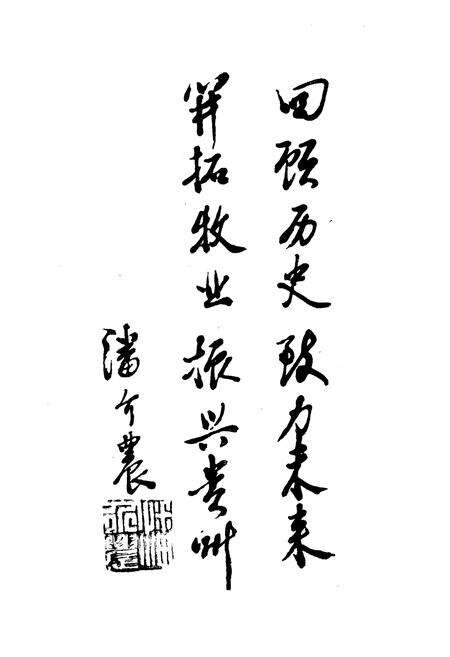 回顾历史 致力未来
開拓牧业 振兴贵州
潘 農